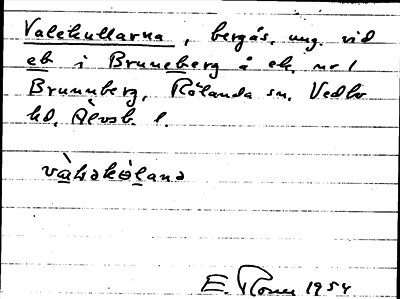 Valekullarna, bergås, ung. vid
ek i Bruneberg å ek. nr 1
Brunnberg, Rölanda sn, Vedbo
hd, Älvsb. l.
E. 1954